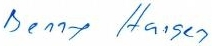 Benny Hansen